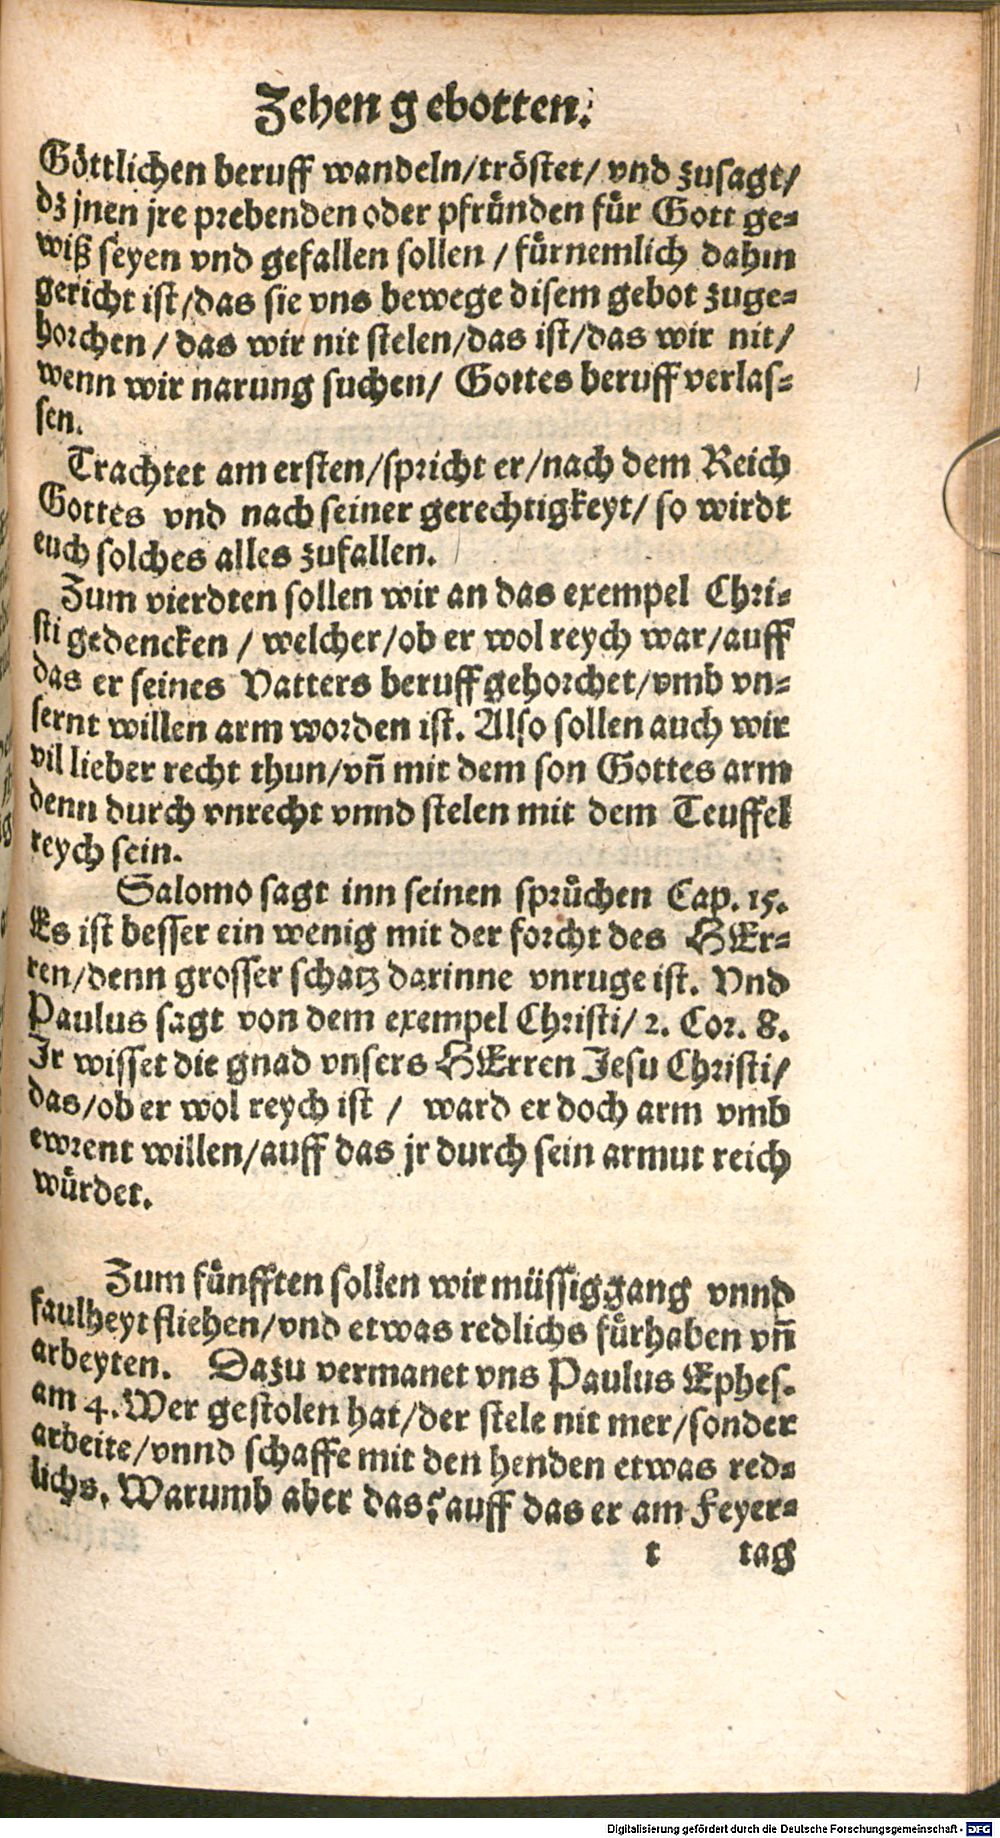 Zehen gebotten.
Göttlichen beruff wandeln/tröstet/ vnd zusagt/
dz jnen jre prebenden oder pfrůnden fůr Gott ge-
wiß seyen vnd gefallen sollen / fůrnemlich dahin
gericht ist/das sie vns bewege disem gebot zuge-
horchen / das wir nit stelen/das ist/das wir nit/
wenn wir narung suchen/ Gottes beruff verlas-
sen.
Trachtet am ersten/spricht er/nach dem Reich
Gottes vnd nach seiner gerechtigkeyt/ so wirdt
euch solches alles zufallen.
Zum vierdten sollen wir an das exempel Chri-
sti gedencken / welcher/ob er wol reych war/auff
das er seines Vatters beruff gehorchet/vmb vn-
sernt willen arm worden ist. Also sollen auch wir
vil lieber recht thun/vñ mit dem son Gottes arm
denn durch vnrecht vnnd stelen mit dem Teuffel
reych sein.
Salomo sagt inn seinen sprůchen Cap. 15.
Es ist besser ein wenig mit der forcht des HEr-
ren/denn grosser schatz darinne vnruge ist. Vnd
Paulus sagt von dem exempel Christi/ 2. Cor. 8.
Jr wisset die gnad vnsers HErren Jesu Christi/
das/ob er wol reych ist / ward er doch arm vmb
ewrent willen/auff das jr durch sein armut reich
wůrdet.
Zum fůnfften sollen wir müssiggang vnnd
faulheyt fliehen/vnd etwas redlichs fůrhaben vñ
arbeyten. Dazu vermanet vns Paulus Ephes.
am 4. Wer gestolen hat/der stele nit mer/sonder
arbeite/vnnd schaffe mit den henden etwas red-
lichs. Warumb aber das? auff das er am Feyer-
t tag
Digitalisierung gefördert durch die Deutsche Forschungsgemeinschaft - DFG